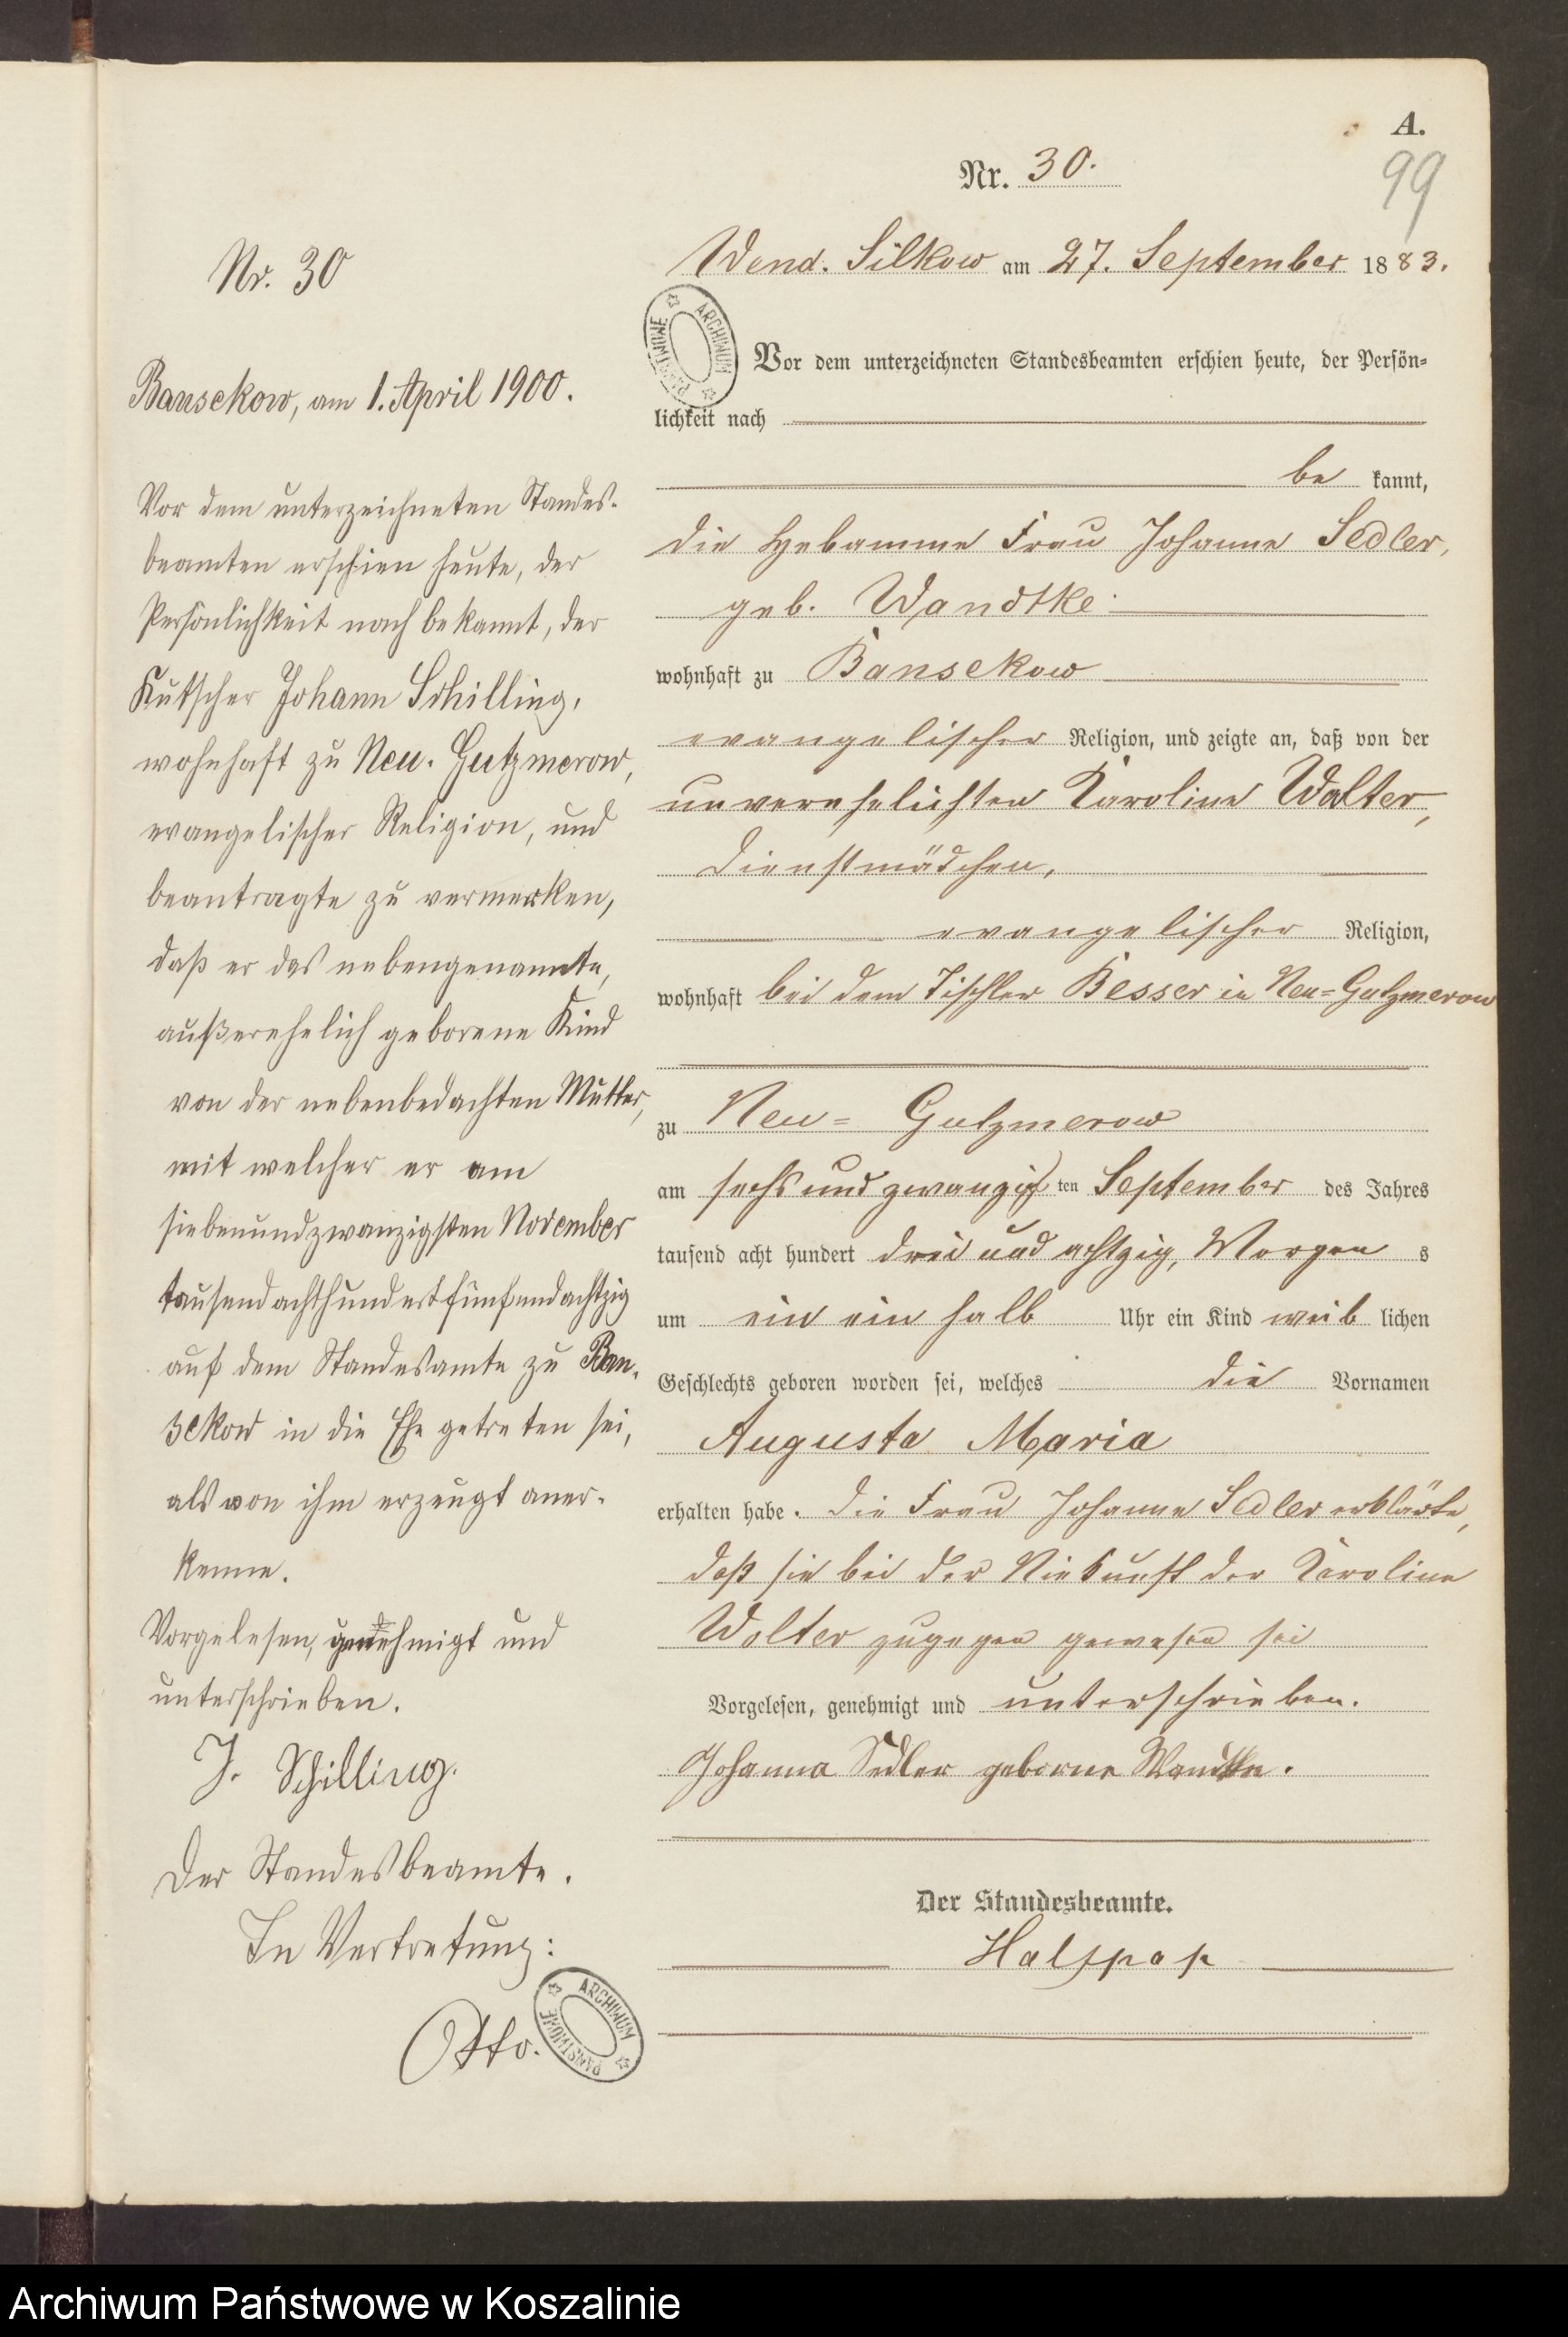 A.
99
Nr. 30.
Wend. Silkow am 27. September 1883.
Vor dem unterzeichneten Standesbeamten erschien heute, der Persön-
lichkeit nach
be kannt,
die Hebamme Frau Johanne Sedler,
geb. Wandtke.
wohnhaft zu Bansekow
evangelischer Religion, und zeigte an, daß von der
unverehelichten Karoline Walter,
Dienstmädchen,
evangelischer Religion,
wohnhaft bei dem Tischler Besser in Neu-Gutzmerow
zu Neu-Gutzmerow
am sechs und zwanzigsten September des Jahres
tausend acht hundert drei und achtzig, Morgen s
um ein ein halb Uhr ein Kind weib lichen
Geschlechts geboren worden sei, welches die Vornamen
Auguste Maria
erhalten habe. Die Frau Johanne Sedler erklärte,
daß sie bei der Niekunft der Karoline
Walter zugegen gewesen sei
Vorgelesen, genehmigt und unterschrieben.
Johanna Sedler geborne Wandtke.
Der Standesbeamte.
Halfpap
Nr. 30
Bansekow, am 1. April 1900.
Vor dem unterzeichneten Standes-
beamten erschien heute, der
Persönlichkeit nach bekannt, der
Kutscher Johann Schilling,
wohnhaft zu Neu-Gutzmerow,
evangelischer Religion, und
beantragte zu vermerken,
daß er das nebengenannte,
außerehelich geborene Kind
von der nebenbedachten Mutter,
mit welcher er am
siebenundzwanzigsten November
tausendachthundertfünfundachtzig
auf dem Standesamte zu Ban-
sekow in die Ehe getreten sei,
als von ihm erzeugt aner-
kenne.
Vorgelesen, genehmigt und
unterschrieben.
J. Schilling.
Der Standesbeamte.
In Vertretung:
Otto.
ARCHIWUM PAŃSTWOWE
ARCHIWUM PAŃSTWOWE
Archiwum Państwowe w Koszalinie